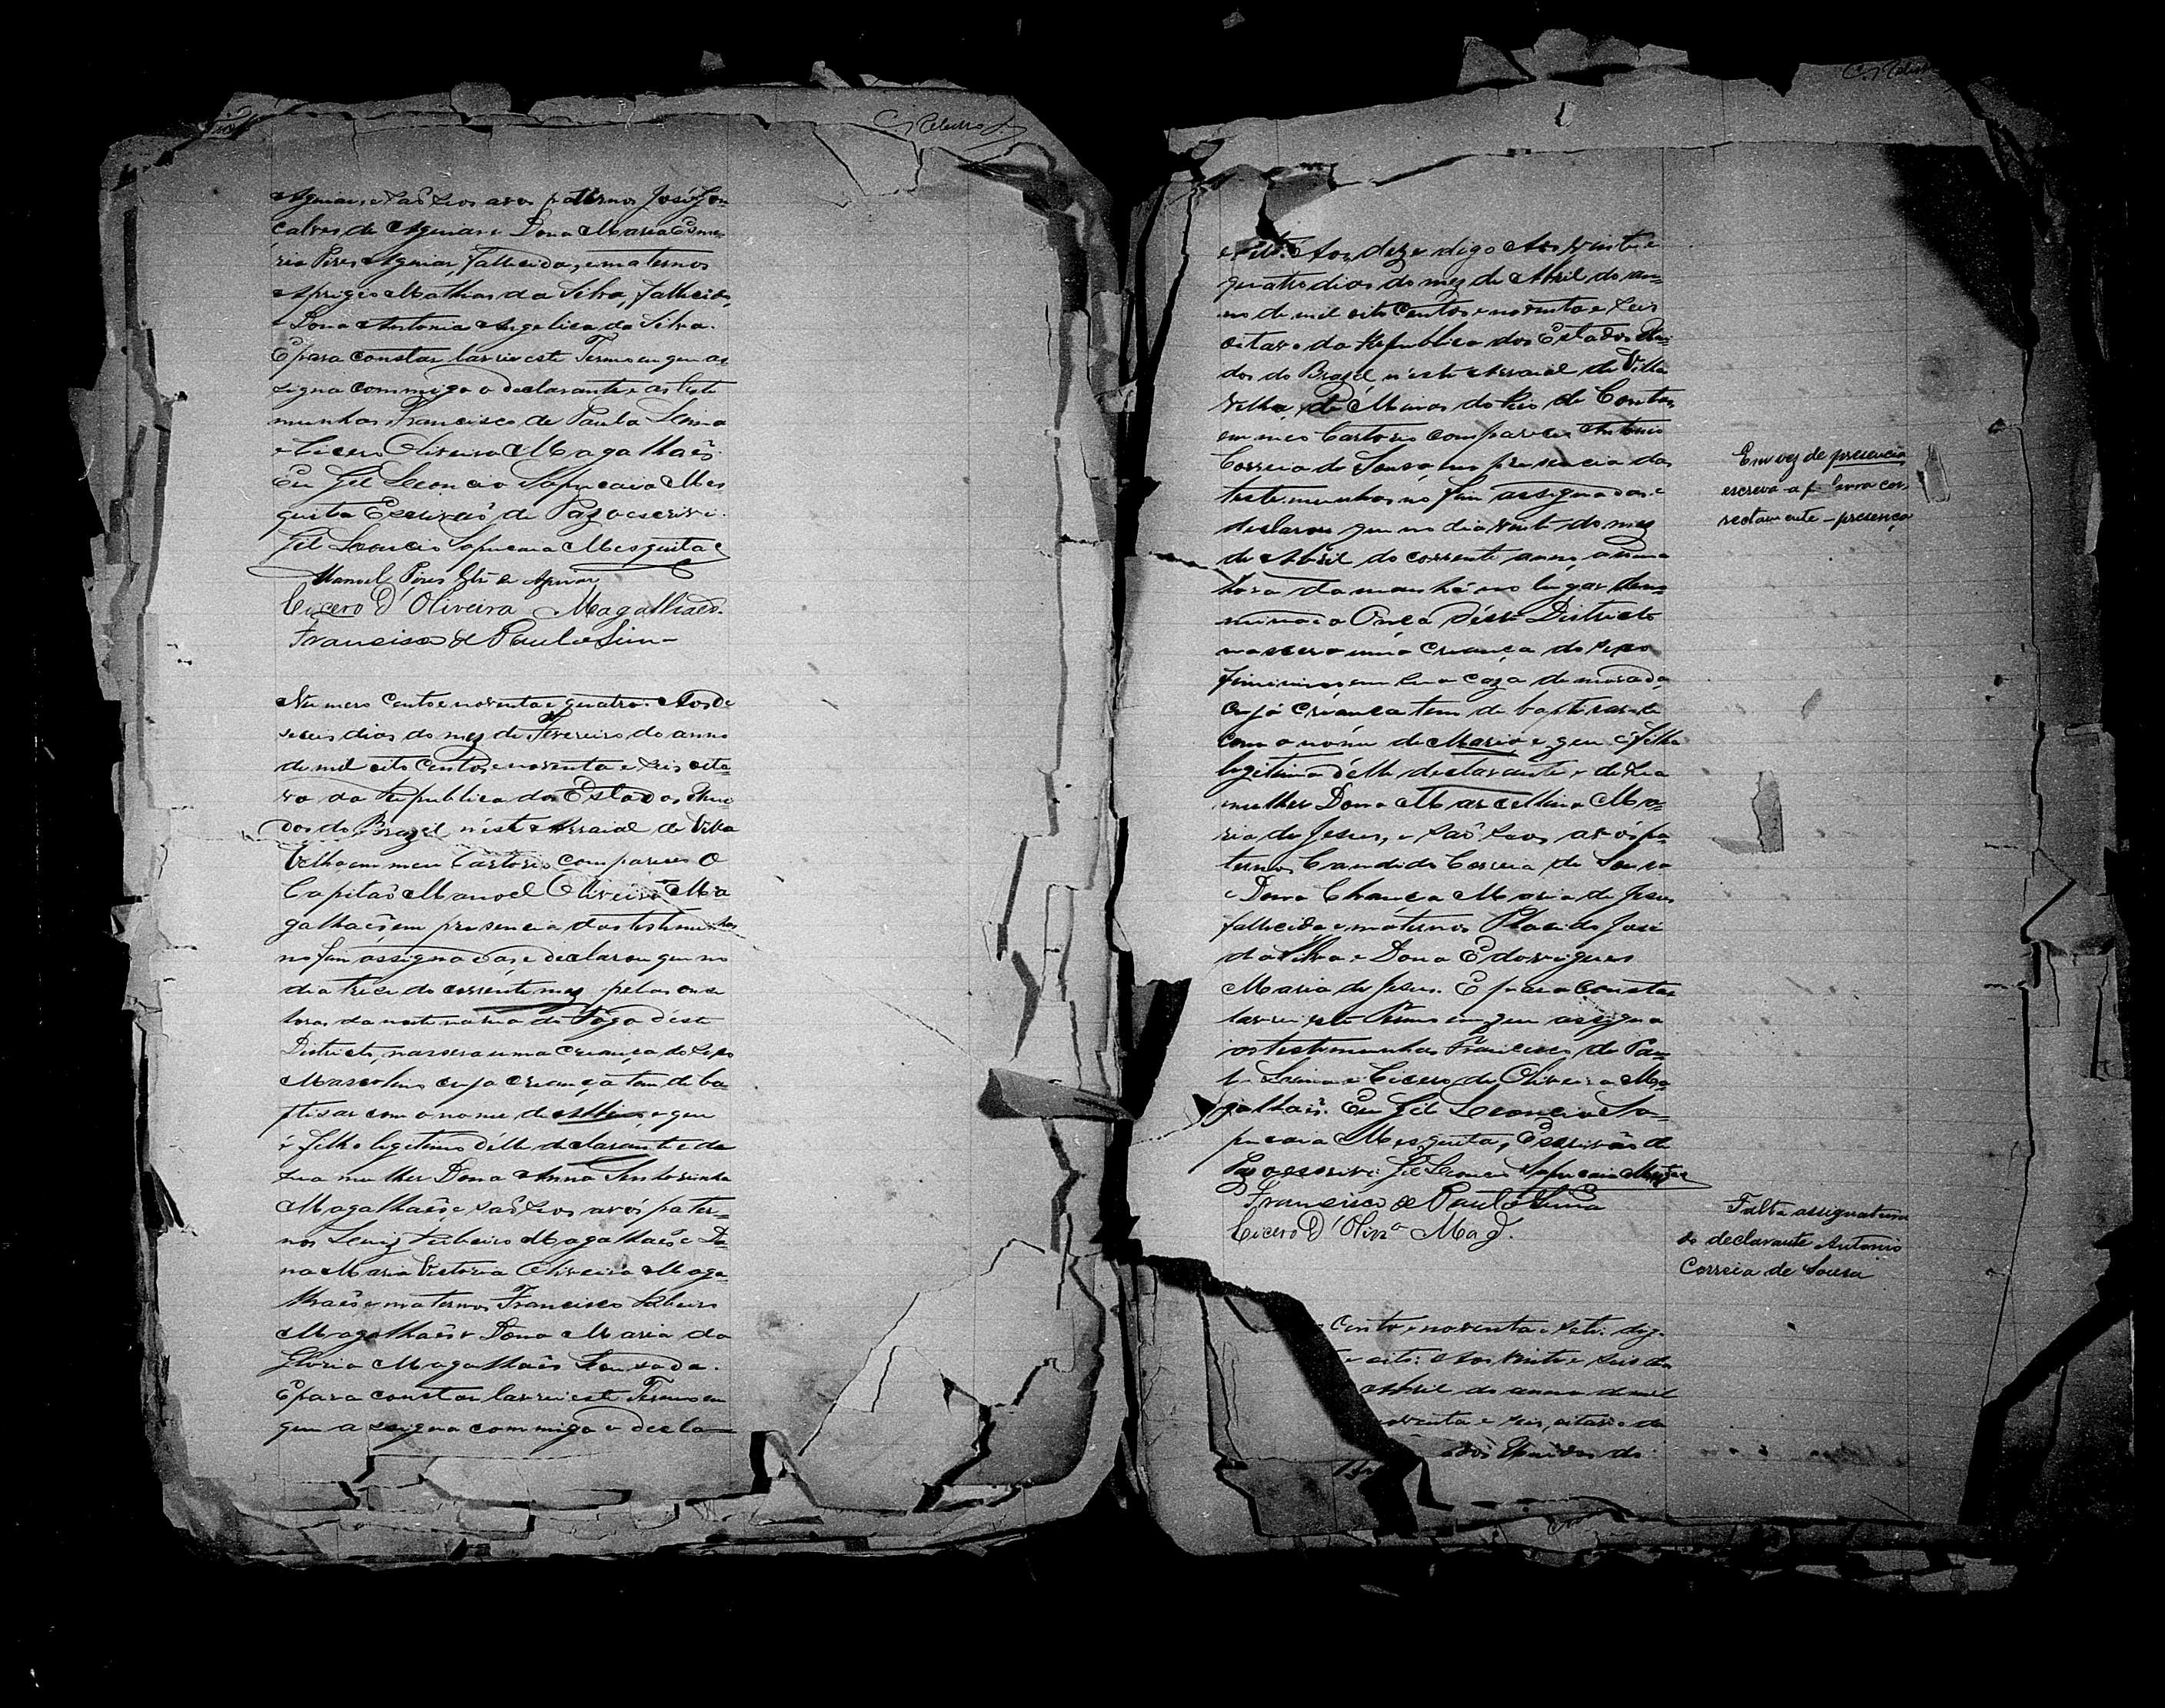 C. Rebello J.
Aguiar, e são seos avos paternos José Gon
calves de Aguiar e Dona Maria Esme
ria Pires Aguiar, fallecida, e maternos
Aprigio Mathias da Silva, fallecido,
e Dona Antonia Angelica da Silva.
E para constar lavrei este Termo em que as
signa commigo o declarante e as teste
munhas Francisco de Paula Lima
e Cicero Oliveira Magalhaês.
Eu Gil Leoncio Sapucaia Mes
quita Escrivaõ de Paz o escrivi.
Gil Leoncio Sapucaia Mesquita
Manoel Pires de Aguiar
Cicero D'Oliveira Magalhaes.
Francisco de Paula Lima
Numero cento e noventa e quatro. Aos de
seseis dias do mez de Fevereiro do anno
de mil oito centos e noventa e seis oita-
vo da Republica dos Estados Uni
dos do Brazil, n'este Arraial de Villa
Velha em meu Cartorio compareceo O
Capitaõ Manoel Oliveira Ma
galhaẽs em presencia das testemunhas
no fim assignadas e declarou que no
dia treze do corrente mez pelas onze
horas da noite na rua do Fôgo d'este
Districto, nascera uma criança do sexo
Masculino cuja criança tem de ba-
ptisar com o nome de e que
é filho legitimo d'elle declarante e de
sua mulher Dona Anna Senhorinha
Magalhaẽs, e saõ seos avós pater-
nos Luiz Ribeiro Magalhaẽs e Do
na Maria Victoria Oliveira Maga-
lhaẽs e maternos Francisco Ribeiro
Magalhaẽs e Dona Maria da
Gloria Magalhaẽs Louzada.
E para constar lavrei este Termo em
que assigna commigo o decla-
C. Rebello
e sete. Aos deze digo Aos vinte e
quatro dias do mez de Abril do an-
no de mil oito centos e noventa e seis
oitavo da Republica dos Estados Uni
dos do Brazil, n'este Arraial de Villa
Velha, de Minas do Rio de Contas,
em meo Cartorio compareceo Antonio
Correia de Sousa em presencia das
testemunhas no fim assignadas e
declarou que no dia vinte do mez
de Abril do corrente anno, a uma
hora da manhã no lugar deno-
minado Onça d'este Districto
nascera uma criança do sexo
feminino em sua caza de morada,
cuja criança tem de baptisar-se
com o nome de Maria e que é filha
legitima d'elle declarante e de sua
mulher Dona Marcellina Ma-
ria de Jesus, e saõ seos avós pa-
ternos Candido Correia de Sousa
e Dona Maria de Jesus
fallecida e maternos Placido José
da Silva e Dona Edoviges
Maria de Jesus. E para constar
lavrei este Termo em que assigna
as testemunhas Francisco de Pau-
la Lima e Cicero de Oliveira Ma-
galhaẽs. Eu Gil Leoncio Sa-
pucaia Mesquita, Escrivão de
Paz o escrivi. Gil Leoncio Sapucaia Mesquita
Francisco de Paula Lima
Cicero D'Olivª Mag.
cento e noventa e sete: digo
e oito: Aos vinte e seis dias
Abril do anno de mil
noventa e seis, oitavo da
ados Unidos do
Em vez de presencia
escreva-a palavra cor-
rectamente - presença
Falta assignatura
do declarante Antonio
Correia de Sousa